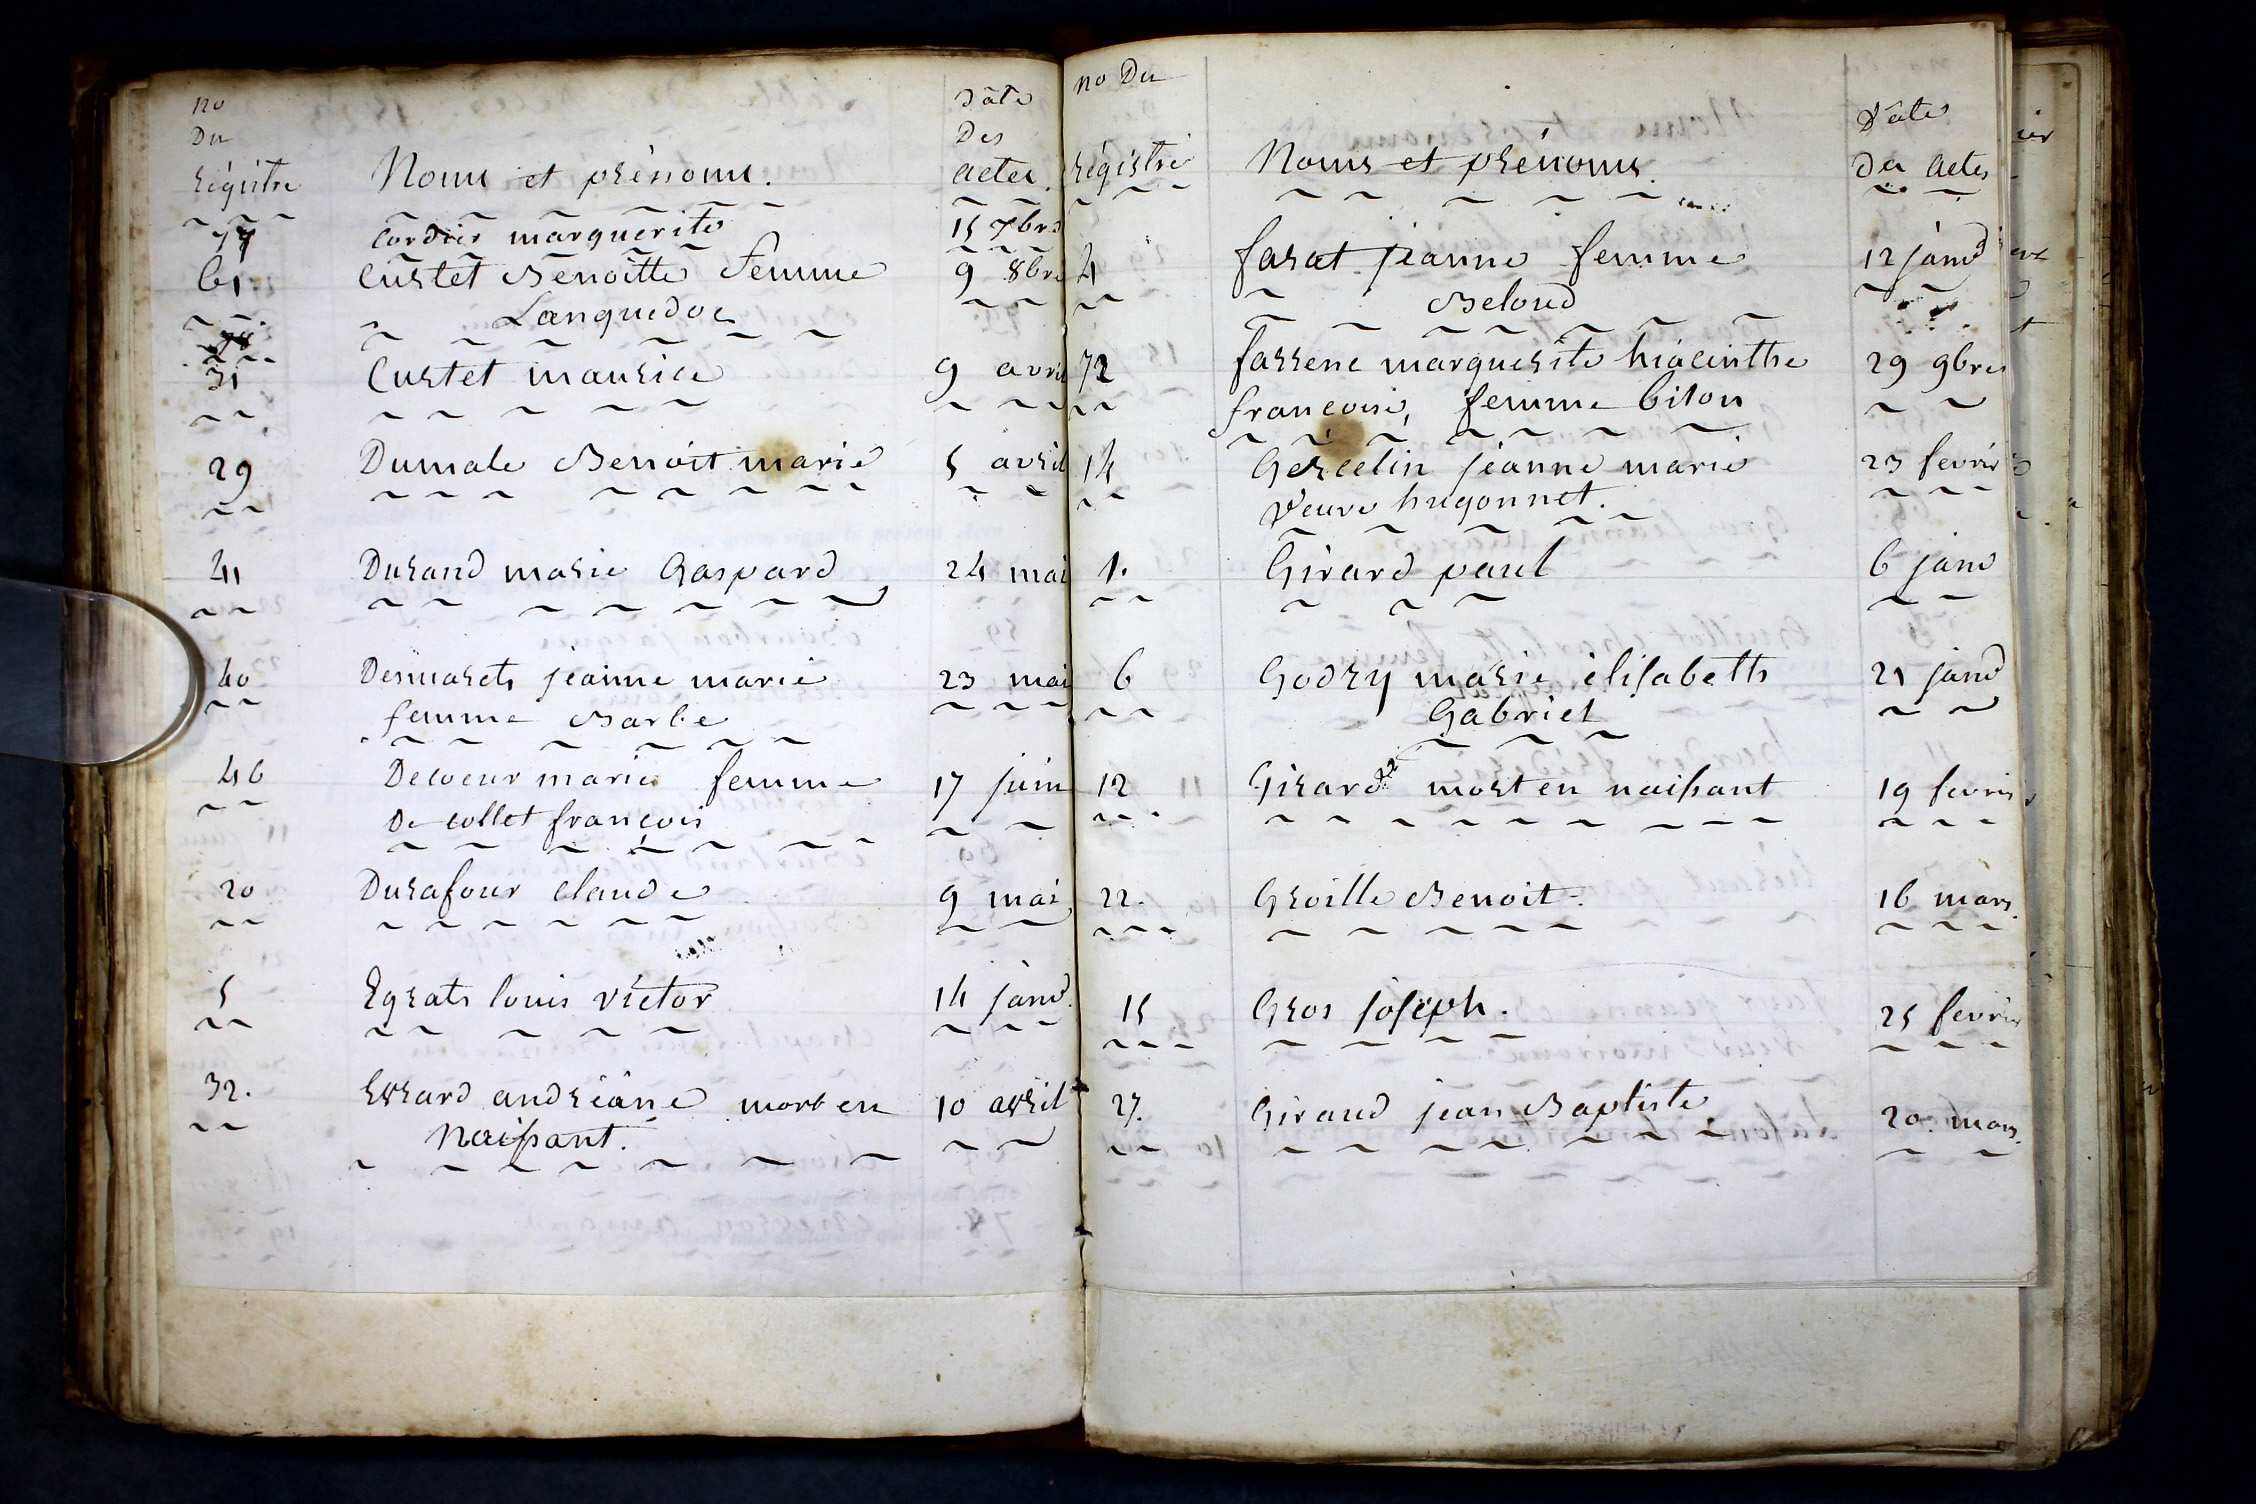 no
Du
Régistre
Noms et prénoms.
Date
Des
actes.
77 Cordier marguerite 15 7bre
61 Curtet Benoitte femme 9 8bre
Languedoc
31 Curtet maurice 9 avril
29 Dumale Benoit marie 5 avril
41 Durand marie Gaspard 24 mai
40 Desmarets jeanne marie 23 mai
femme Barbe
46 Decoeur marie femme 17 juin
De collet françois
20 Durafour claude 9 mai
5 Egrats louis victor 14 janv.
32. Evrard andréane mort en 10 avril
Naissant.
no Du
Régistre
Noms et prénoms.
Date
des actes
4 farat jeanne femme 12 janv
Beloud
72 farrene marguerite hiacinthe 29 9bre
françoise, femme biton
14 Gercelin jeanne marie 23 fevrier
Veuve hugonnet.
1. Girard paul 6 janv
6 Godry marie elisabeth 21 janv
Gabriel
12 Girard mort en naissant 19 fevrier
22. Groille Benoit. 16 mars.
15 Gros joseph. 25 fevrier
27. Giraud jean Baptiste 20. mars.